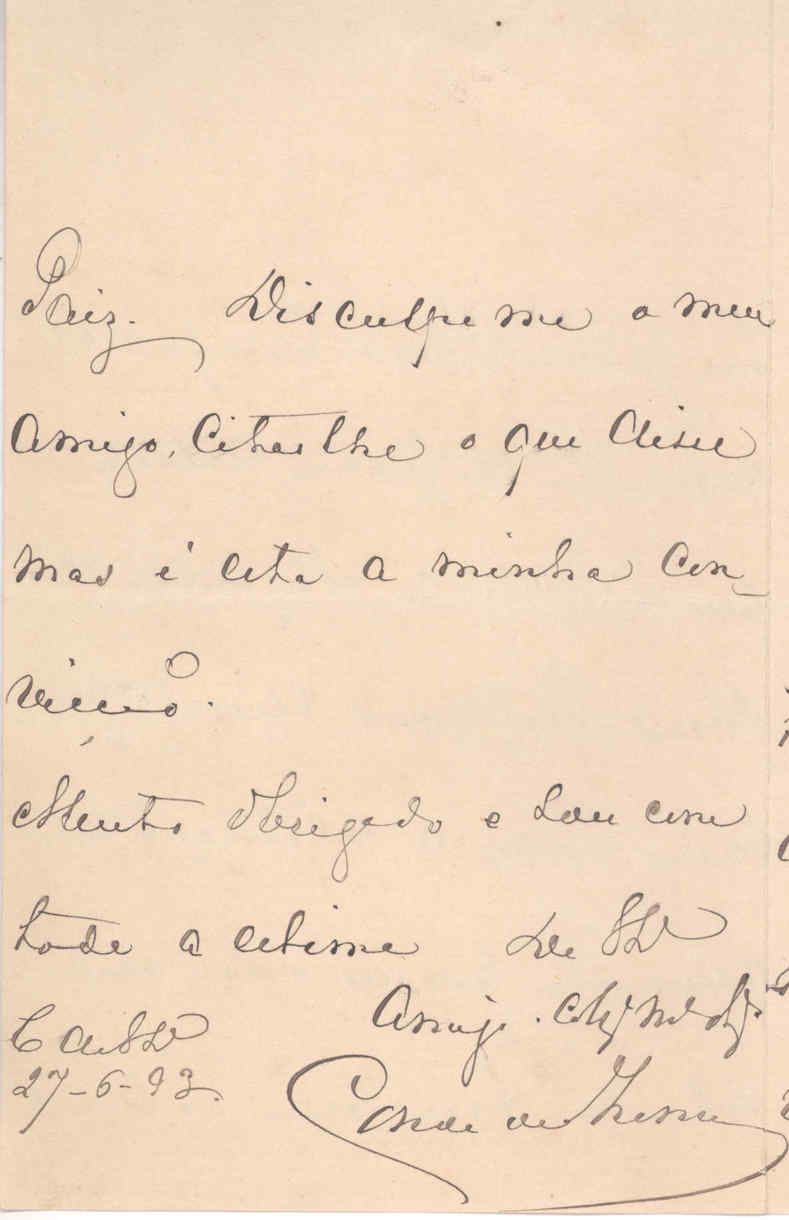 Paiz. Disculpe me o meu
amigo, citar lhe o que disse
mas é esta a minha con-
vicção.
Muito obrigado e sou com
toda a estima De VExª
Amigo
C de VExª
27-6-93.
Conde de